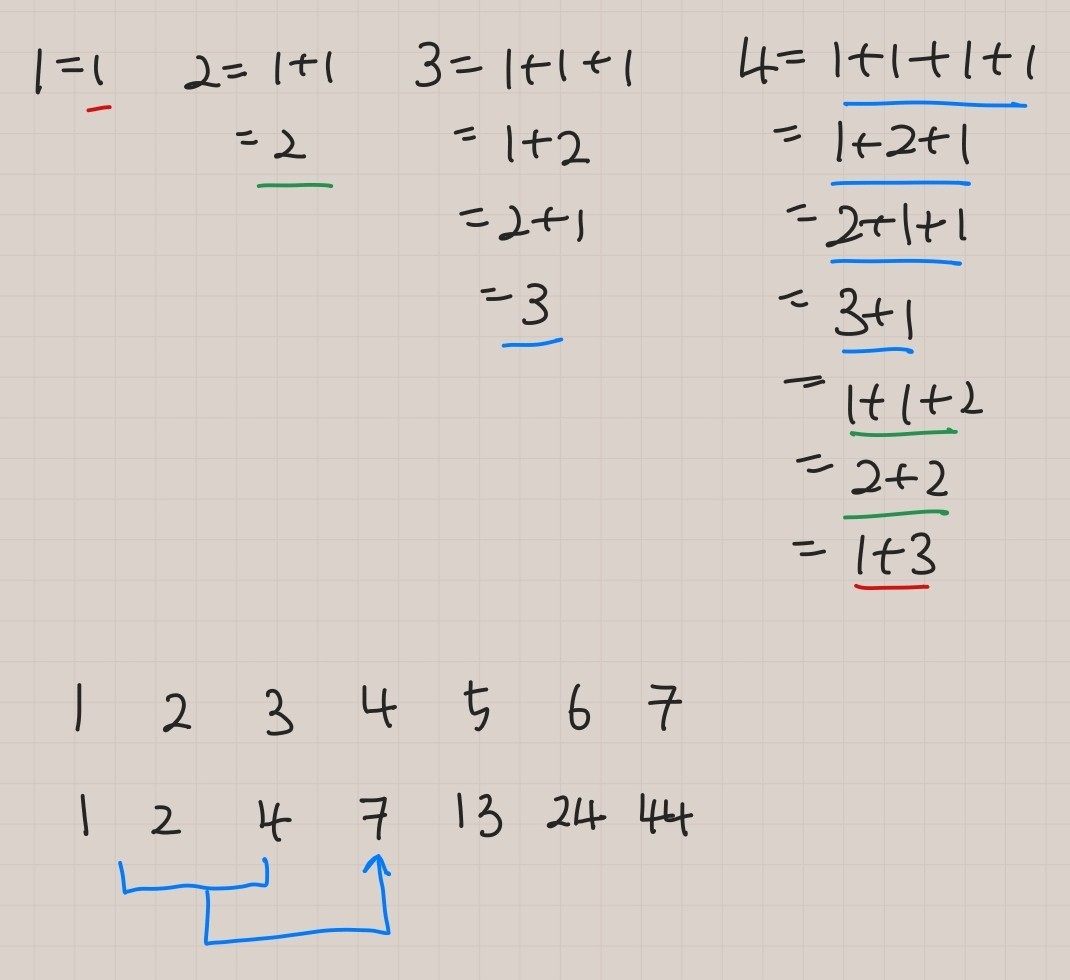 1=1 2=1+1 3=1+1+1 4=1+1+1+1
=2 =1+2 =1+2+1
=2+1 =2+1+1
=3 =3+1
=1+1+2
=2+2
=1+3
1 2 3 4 5 6 7
1 2 4 7 13 24 44